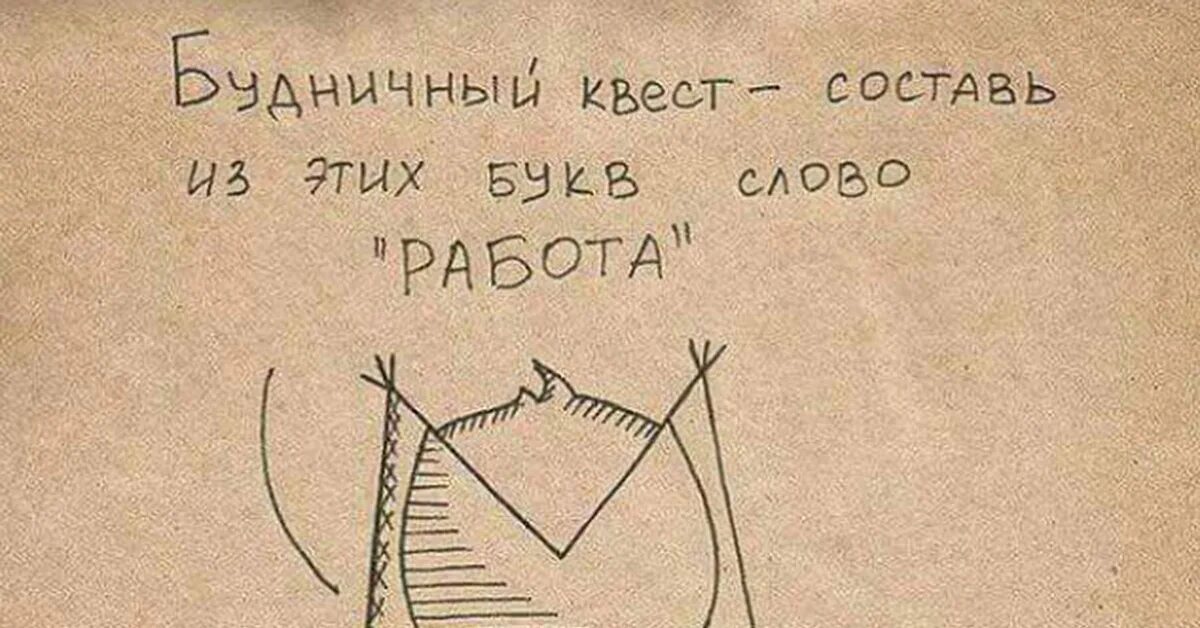 Будничный квест - составь
из этих букв слово
"РАБОТА"